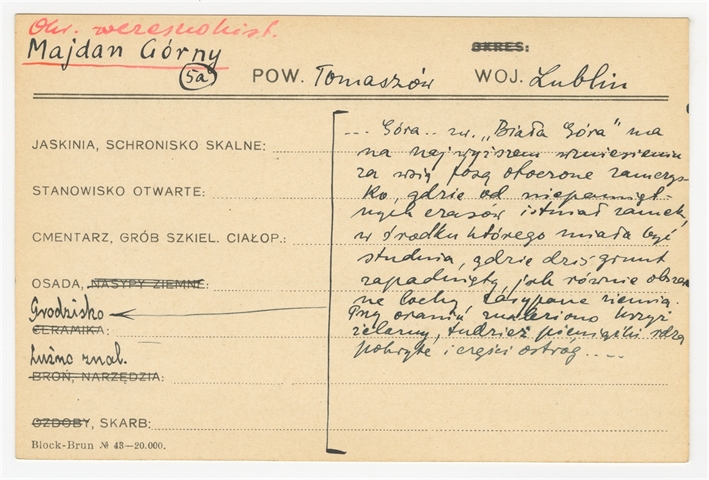 Okr. wczesnohist.
Majdan Górny
5a
OKRES:
POW. Tomaszów WOJ. Lublin
JASKINIA, SCHRONISKO SKALNE:
STANOWISKO OTWARTE:
CMENTARZ, GRÓB SZKIEL. CIAŁOP.:
OSADA, NASYPY ZIEMNE:
Grodzisko
CERAMIKA:
Luźno znal.
BROŃ, NARZĘDZIA:
OZDOBY, SKARB:
Block-Brun № 43—20.000.
... Góra .. zw. „Biała Góra" ma
na najwyższem wzniesieniu
za wsią fosą otoczone zamczys-
ko, gdzie od niepamięt-
nych czasów istniał zamek,
w środku którego miała być
studnia, gdzie dziś grunt
zapadnięty, jak równie obszer
ne lochy zasypane ziemią.
Przy oraniu znaleziono krzyż
żelazny, tudzież pieniążki rdzą
pokryte i części ostróg....